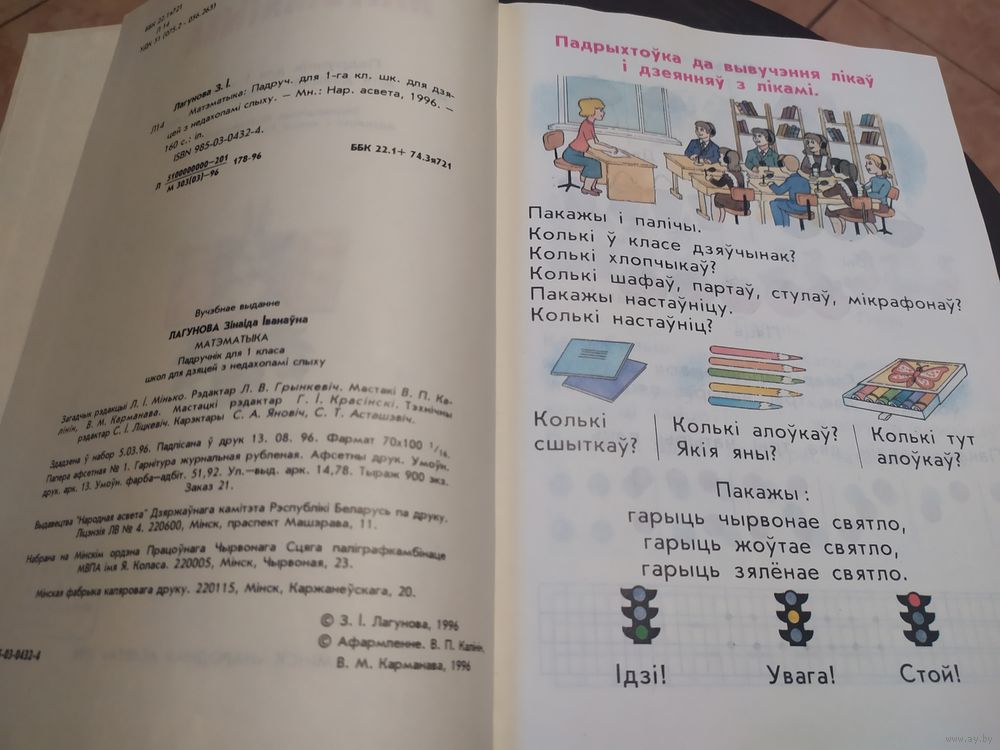 ББК 22.1я721
Л 14
УДК 51 (075.2 - 056.263)
Лагунова З. І.
Л14
Матэматыка: Падруч. для 1-га кл. шк. для дзя-
цей з недахопамі слыху. — Мн.: Нар. асвета, 1996. —
160 с.: іл.
ISBN 985-03-0432-4.
Л 3100000000—201 178-96
М 303(03)—96
ББК 22.1+ 74.3я721
Вучэбнае выданне
ЛАГУНОВА Зінаіда Іванаўна
МАТЭМАТЫКА
Падручнік для 1 класа
школ для дзяцей з недахопамі слыху
Загадчык рэдакцыі Л. І. Мінько. Рэдактар Л. В. Грынкевіч. Мастакі В. П. Ка-
лінін, В. М. Карманава. Мастацкі рэдактар Г. І. Красінскі. Тэхнічны
рэдактар С. І. Ліцкевіч. Карэктары С. А. Яновіч, С. Т. Асташэвіч.
Здадзена ў набор 5.03.96. Падпісана ў друк 13. 08. 96. Фармат 70×100 1/16.
Папера афсетная № 1. Гарнітура журнальная рубленая. Афсетны друк. Умоўн.
друк. арк. 13. Умоўн. фарба-адбіт. 51,92. Ул.—выд. арк. 14,78. Тыраж 900 экз.
Заказ 21.
Выдавецтва "Народная асвета" Дзяржаўнага камітэта Рэспублікі Беларусь па друку.
Ліцэнзія ЛВ № 4. 220600, Мінск, праспект Машэрава, 11.
Набрана на Мінскім ордэна Працоўнага Чырвонага Сцяга паліграфкамбінаце
МВПА імя Я. Коласа. 220005, Мінск, Чырвоная, 23.
Мінская фабрыка каляровага друку. 220115, Мінск, Каржанеўскага, 20.
© З. І. Лагунова, 1996
© Афармленне. В. П. Калінін,
В. М. Карманава, 1996
5-03-0432-4
Падрыхтоўка да вывучэння лікаў
і дзеянняў з лікамі.
Пакажы і палічы.
Колькі ў класе дзяўчынак?
Колькі хлопчыкаў?
Колькі шафаў, партаў, стулаў, мікрафонаў?
Пакажы настаўніцу.
Колькі настаўніц?
Колькі
сшыткаў?
Колькі алоўкаў?
Якія яны?
Колькі тут
алоўкаў?
Пакажы:
гарыць чырвонае святло,
гарыць жоўтае святло,
гарыць зялёнае святло.
Ідзі!
Увага!
Стой!
www.ay.by